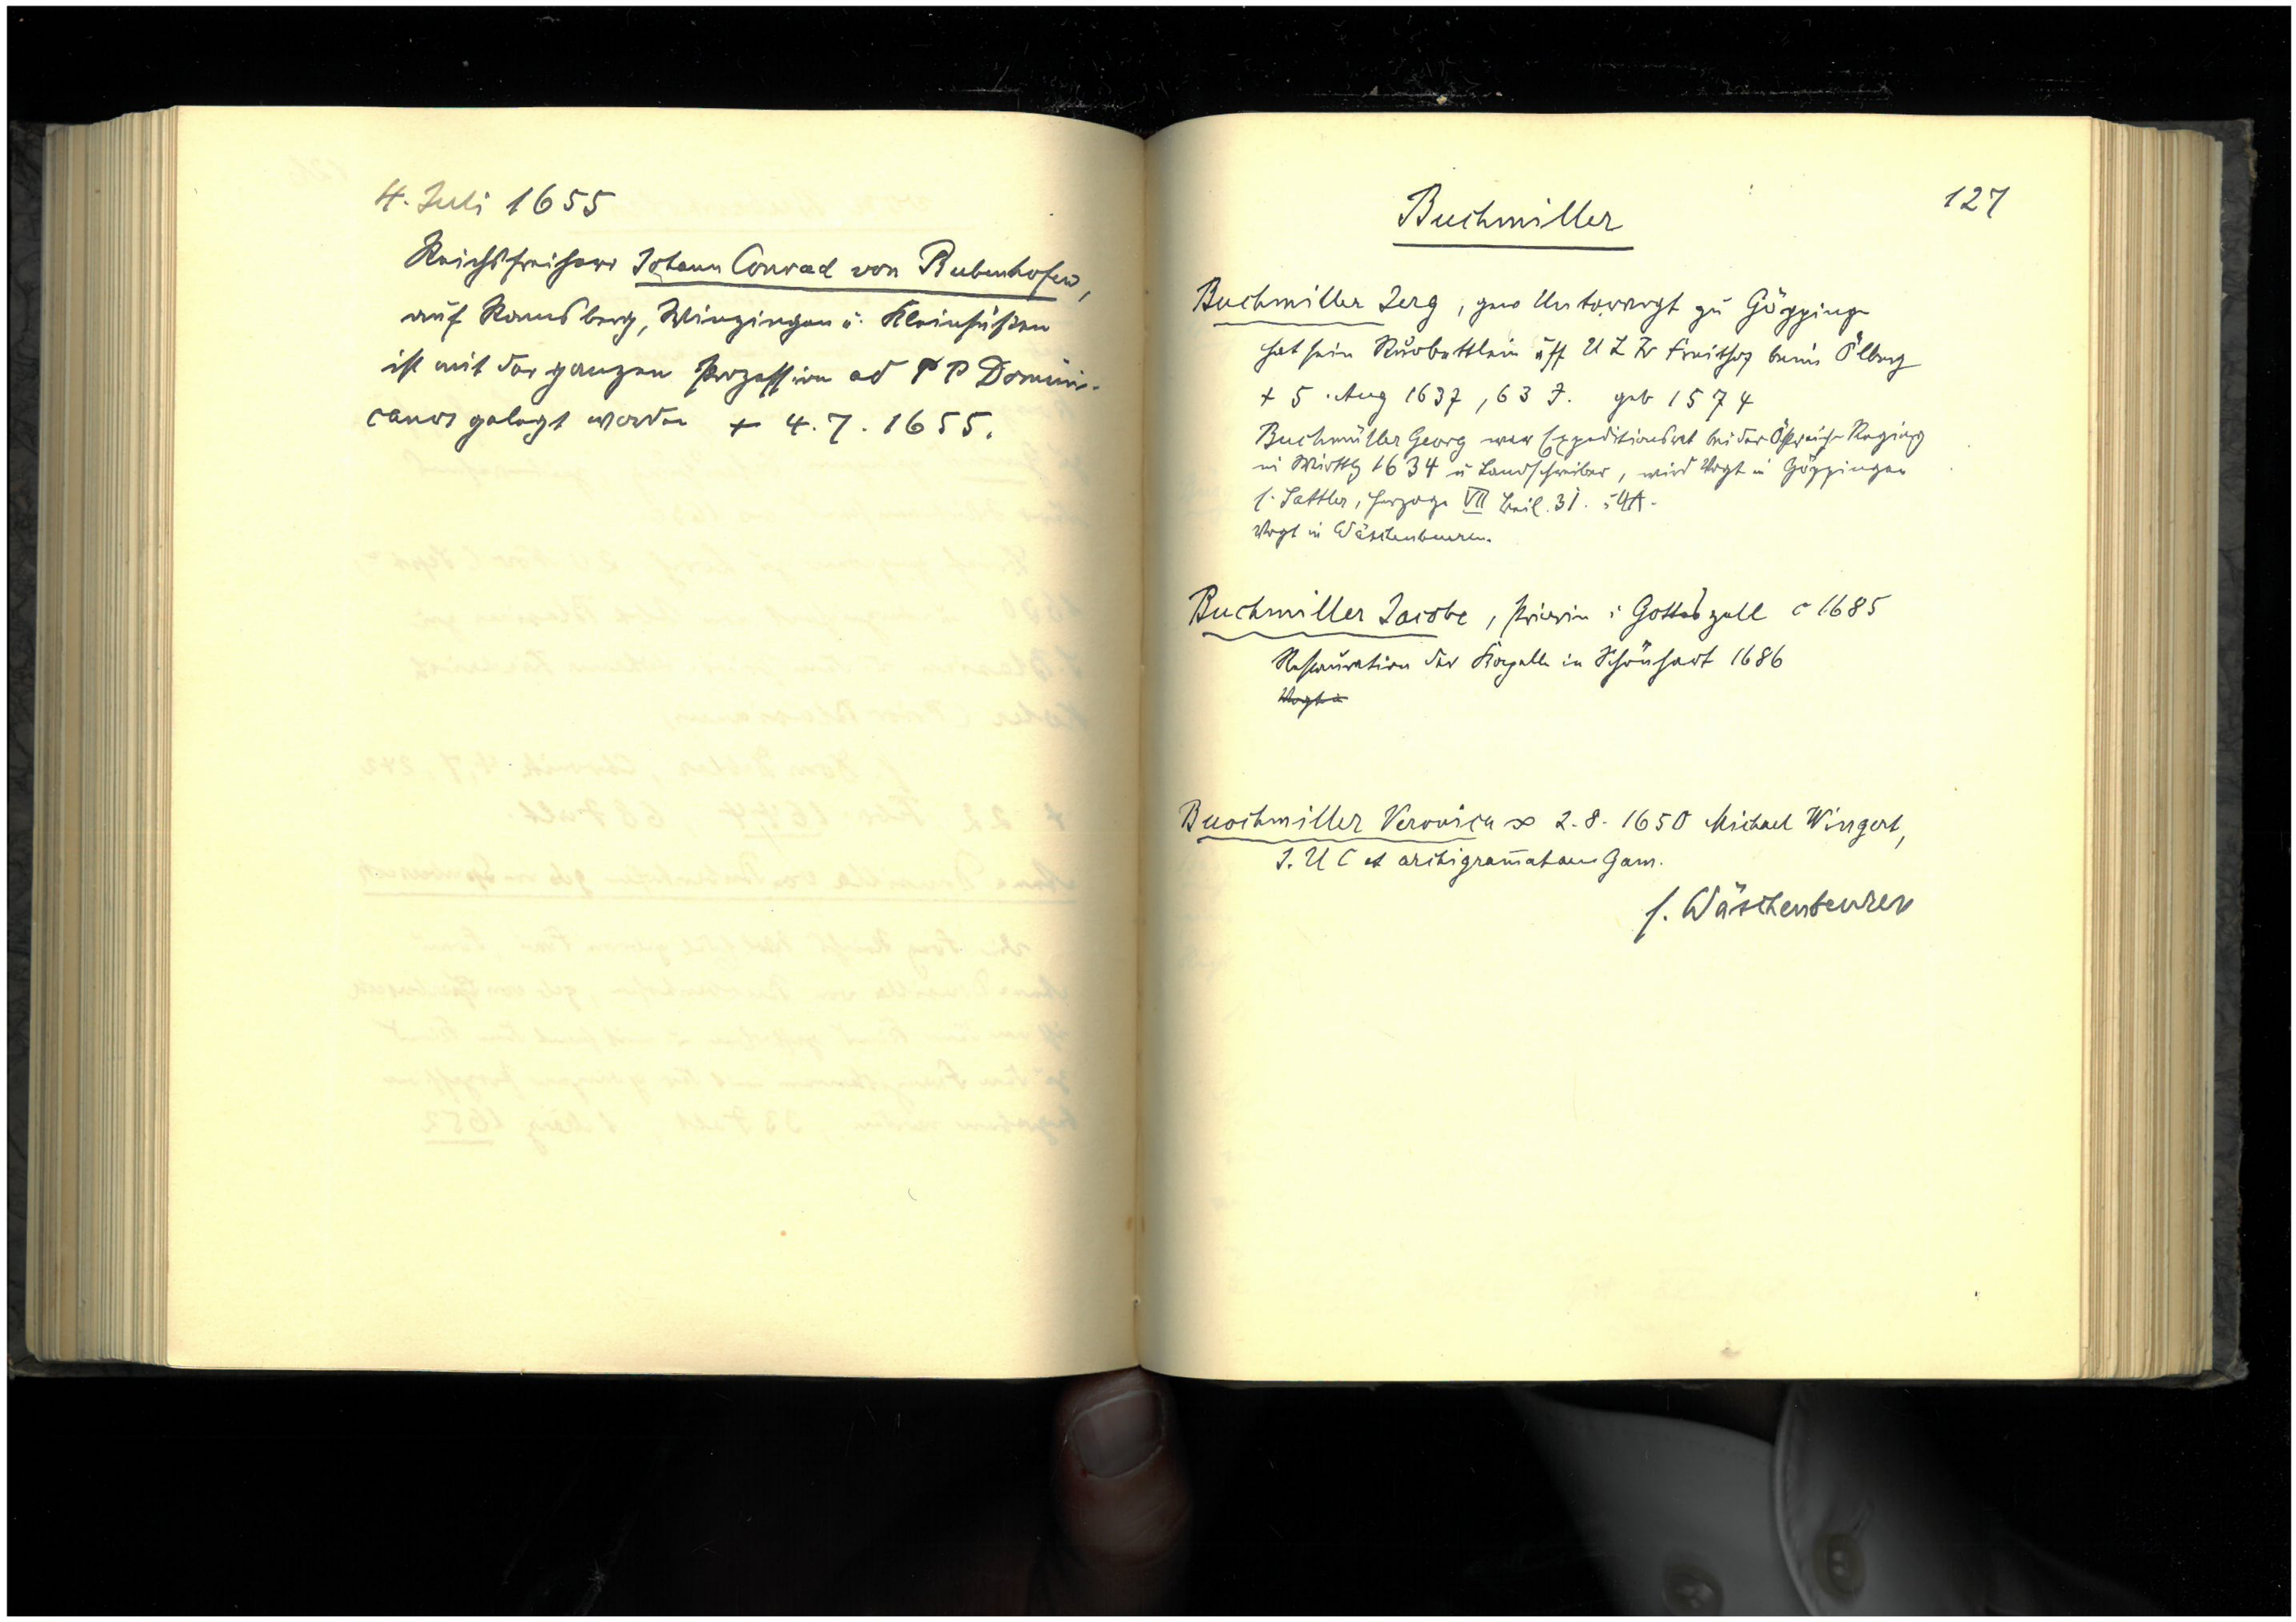 4. Juli 1655
Reichsfreiherr Johann Conrad von Bubenhofen,
auf Ramsberg, Winzingen u. Kleinsüßen
ist mit der ganzen Prozession ad P P Domini-
canos gelegt worden + 4. 7. 1655.
127
Buchmiller
Buchmiller Jerg, gew Untervogt zu Göppinge
hat sein Ruobettlein uff U L Fr Freithof beim Ölberg
+ 5. Aug 1637, 63 J. geb 1574
Buchmüller Georg war Expeditionsrat bei der Östreich Regierg
in Wirttbg 1634 u Landschreiber, wird Vogt in Göppingen
s. Sattler, Herzoge VII Beil. 31.
Vogt in Wäschenbeuren.
Buchmiller Jacobe, Priorin i Gotteszell c 1685
Restauration der Kapelle in Schönhart 1686
Vogt in
Buochmiller Veronica ∞ 2. 8. 1650 Michael Wingert,
J. U C et archigram̄ataeus Gam.
s. Wäschenbeuren